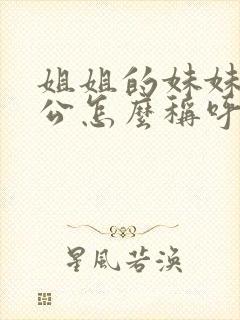 姐姐的妹妹
公怎麼稱呼
星風若渙